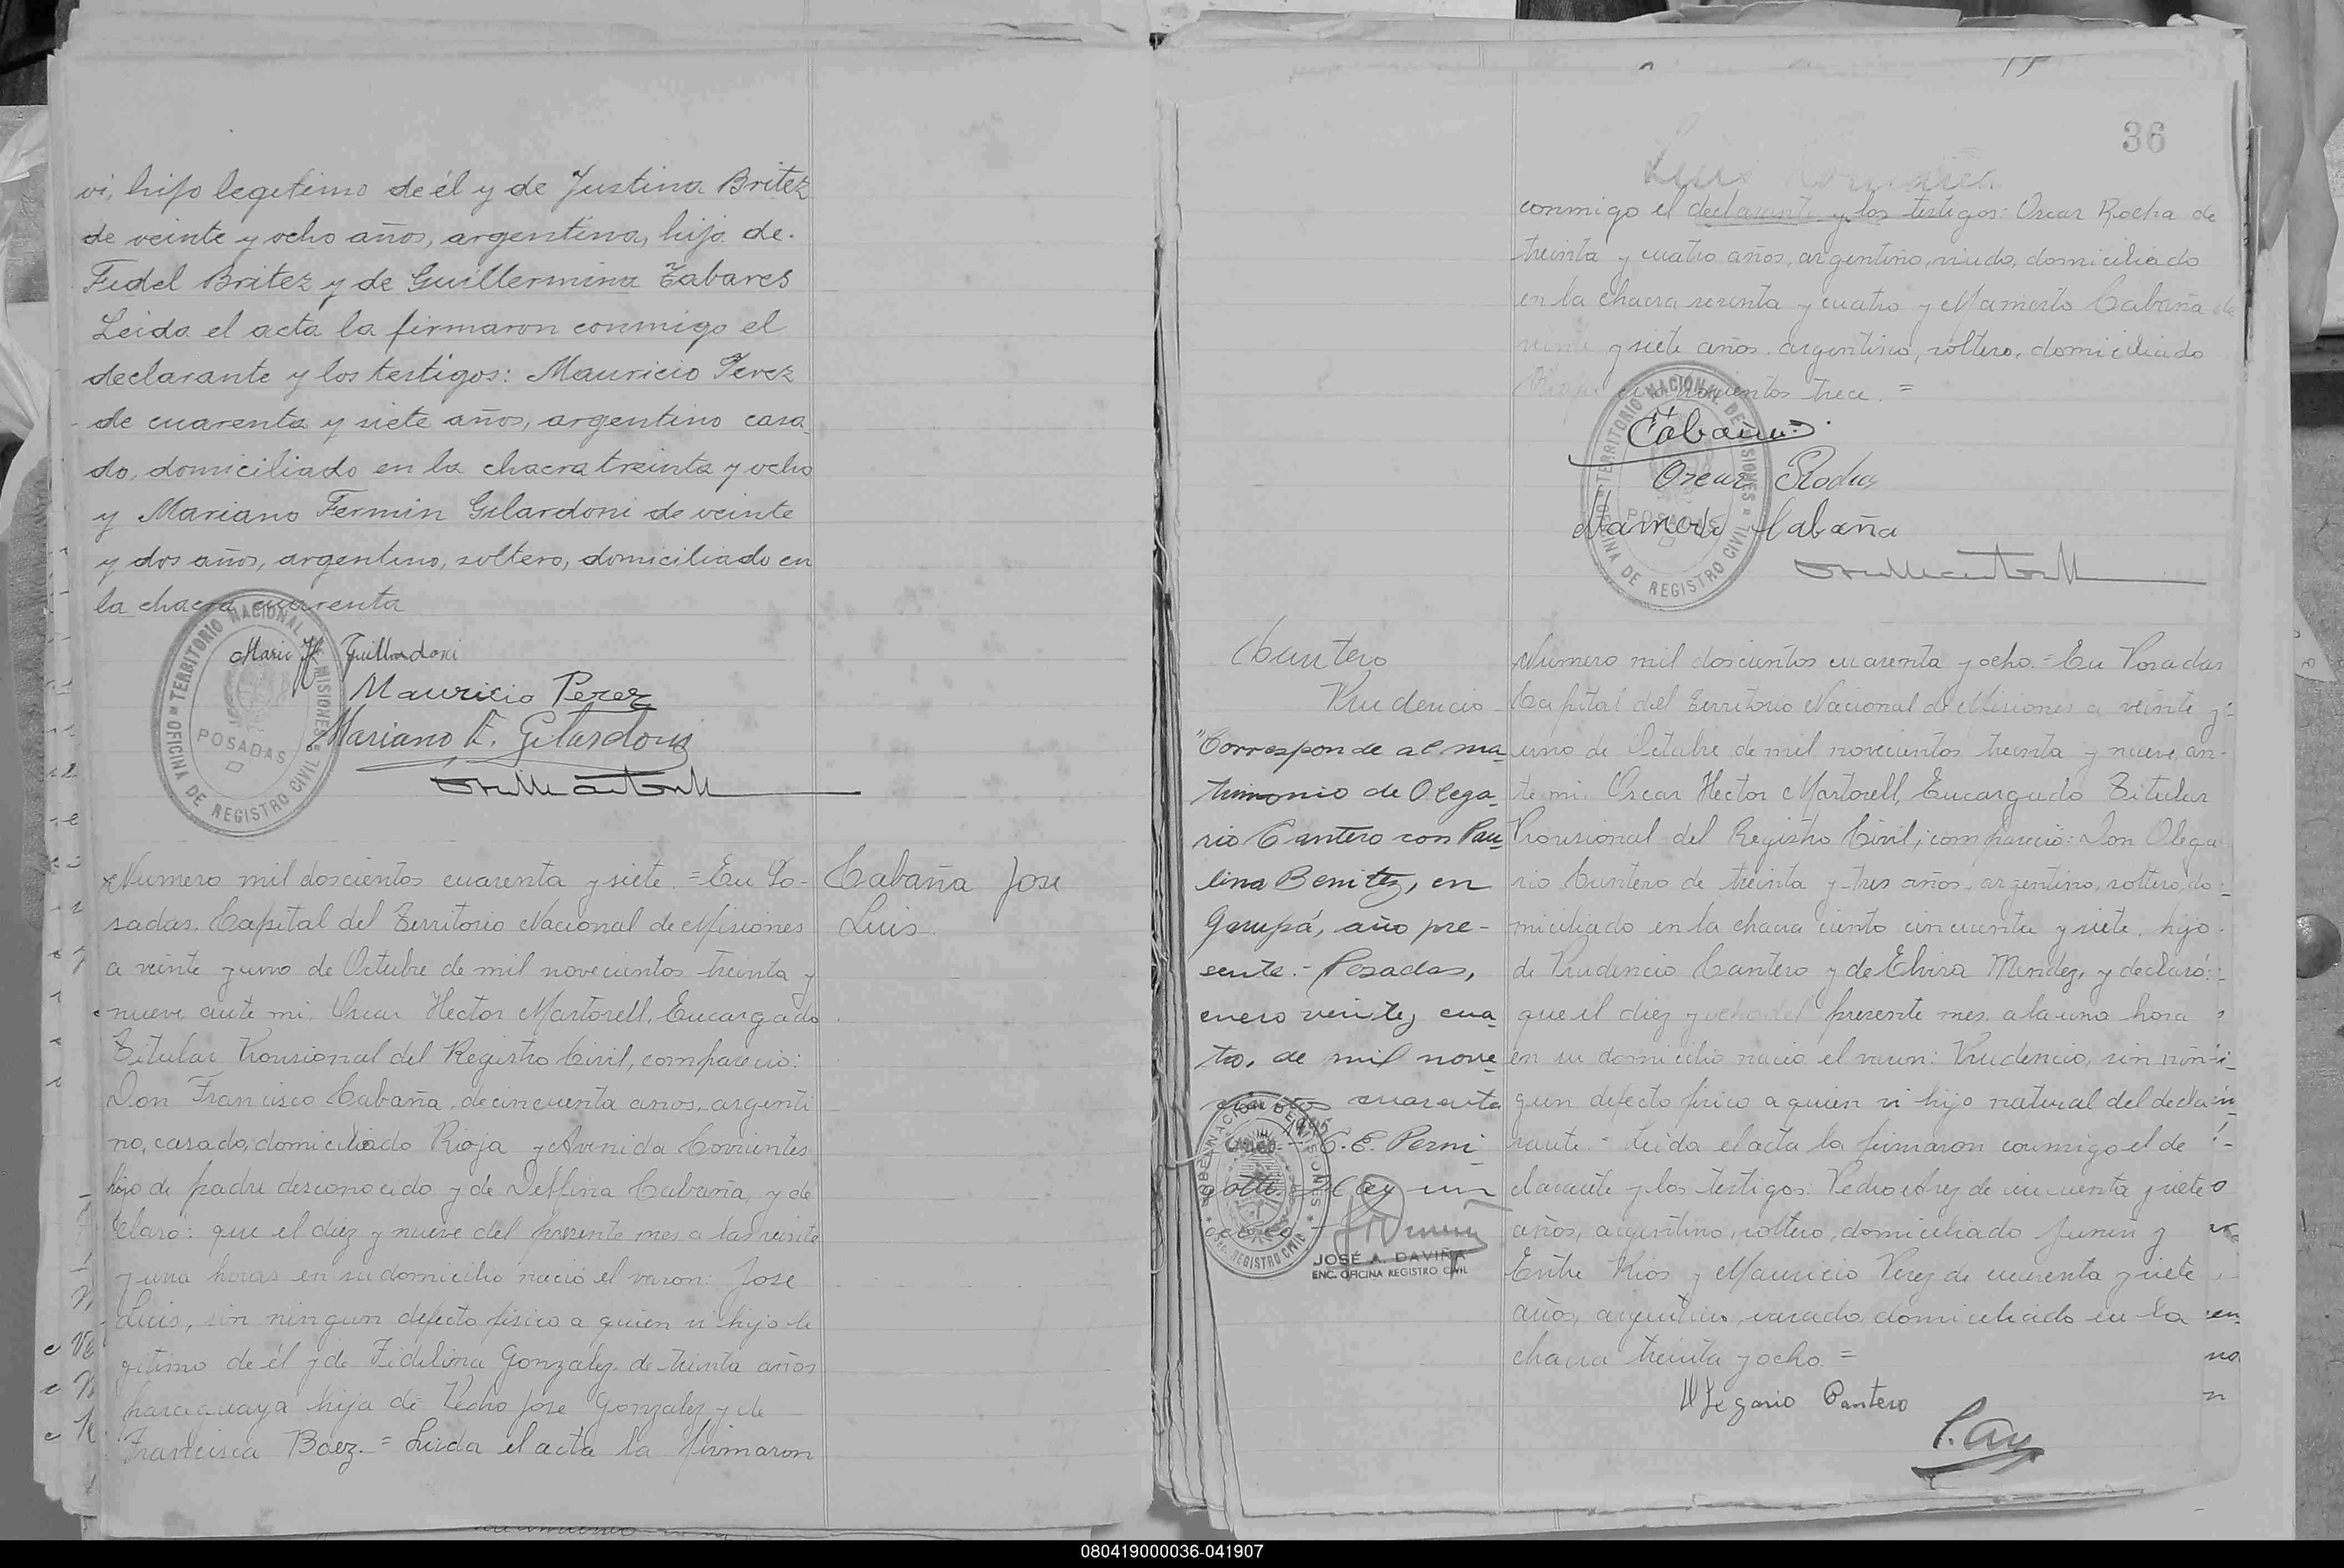 vi, hijo legitimo de él y de Justina Britez
de veinte y ocho años, argentina, hija de.
Fidel Britez y de Guillermina Tabares
Leida el acta la firmaron conmigo el
declarante y los testigos: Mauricio Perez
de cuarenta y siete años, argentino casa
do, domiciliado en la chacra treinta y ocho
y Mariano Fermin Gilardoni de veinte
y dos años, argentino, soltero, domiciliado en
la chacra cuarenta
OFICINA DE REGISTRO CIVIL TERRITORIO NACIONAL DE MISIONES
POSADAS
Mauricio Perez
Mariano F. Gilardoni
Numero mil doscientos cuarenta y siete. = En Po-
sadas. Capital del Territorio Nacional de Misiones
a veinte y uno de Octubre de mil novecientos treinta y
nueve, ante mi. Oscar Hector Martorell, Encargado
Titular Provisional del Registro Civil, comparecio:
Don Francisco Cabaña, de cincuenta años, argenti
no, casado, domiciliado Rioja y Avenida Corrientes
hijo de padre desconocido y de Delfina Cabaña, y de
claro: que el diez y nueve del presente mes a las veinte
y una horas en su domicilio nacio el varon: Jose
Luis, sin ningun defecto fisico a quien vi hijo le
gitimo de él y de Fidelina González de treinta años
paraguaya hija de Pedro Jose Gonzalez y de
Francisca Baez. = Leida el acta la firmaron
Cabaña Jose
Luis.
36
conmigo el declarante y los testigos: Oscar Rocha de
treinta y cuatro años, argentino, viudo, domiciliado
en la chacra sesenta y cuatro y Mamerto Cabaña de
y siete años, argentino, soltero, domiciliado
trece. =
OFICINA DE REGISTRO CIVIL TERRITORIO NACIONAL DE MISIONES
POSADAS
Cabaña
Oscar Rocha
Mamerto Cabaña
Cantero
Prudencio
"Corresponde al ma-
trimonio de Olega-
rio Cantero con Pau-
lina Benitez, en
Garupá, año pre-
sente.- Posadas,
enero veinte y cua-
tro, de mil nove-
cientos cuarenta
GOBERNACION DE MISIONES
REGISTRO CIVIL
JOSÉ A. DAVIÑA
ENC. OFICINA REGISTRO CIVIL
Numero mil doscientos cuarenta y ocho. = En Posadas
Capital del Territorio Nacional de Misiones a veinte y
uno de Octubre de mil novecientos treinta y nueve, an-
te mi. Oscar Hector Martorell, Encargado Titular
Provisional del Registro Civil; comparecio: Don Olega
rio Cantero de treinta y tres años, argentino, soltero, do-
miciliado en la chacra ciento cincuenta y siete, hijo
de Prudencio Cantero y de Elvira Mendez, y declaró:
que el diez y ocho del presente mes, a la una hora
en su domicilio nacio el varon: Prudencio, sin nin-
gun defecto fisico a quien vi hijo natural del decla-
rante. = Leida el acta la firmaron conmigo el de
clarante y los testigos: Pedro Arez de cincuenta y siete
años, argentino, soltero, domiciliado Junin y
Entre Rios y Mauricio Perez de cuarenta y siete
años, argentino, casado, domiciliado en la
chacra treinta y ocho. =
Olegario Cantero
080419000036-041907